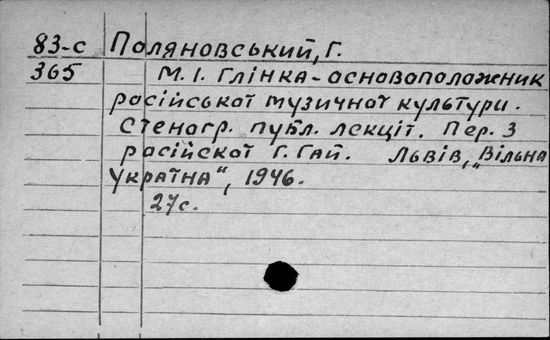 83-с Поляновський, Г.
365 М. І. Глінка - основоположник
російської музичної культури.
Стеногр. публ. лекції. Пер. з
російскої Г. Гай. Львів, „Вільна
Україна“, 1946.
27с.